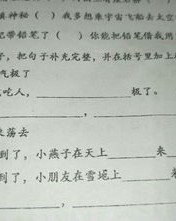 真神秘（ ）我多想乘宇宙飞船去太空
记带铅笔了（ ）你能把铅笔借我用
子，把句子补充完整，并在括号里加上
气极了
或吃人，________极了。
来荡去
到了，小燕子在天上________来
到了，小朋友在雪地上________来